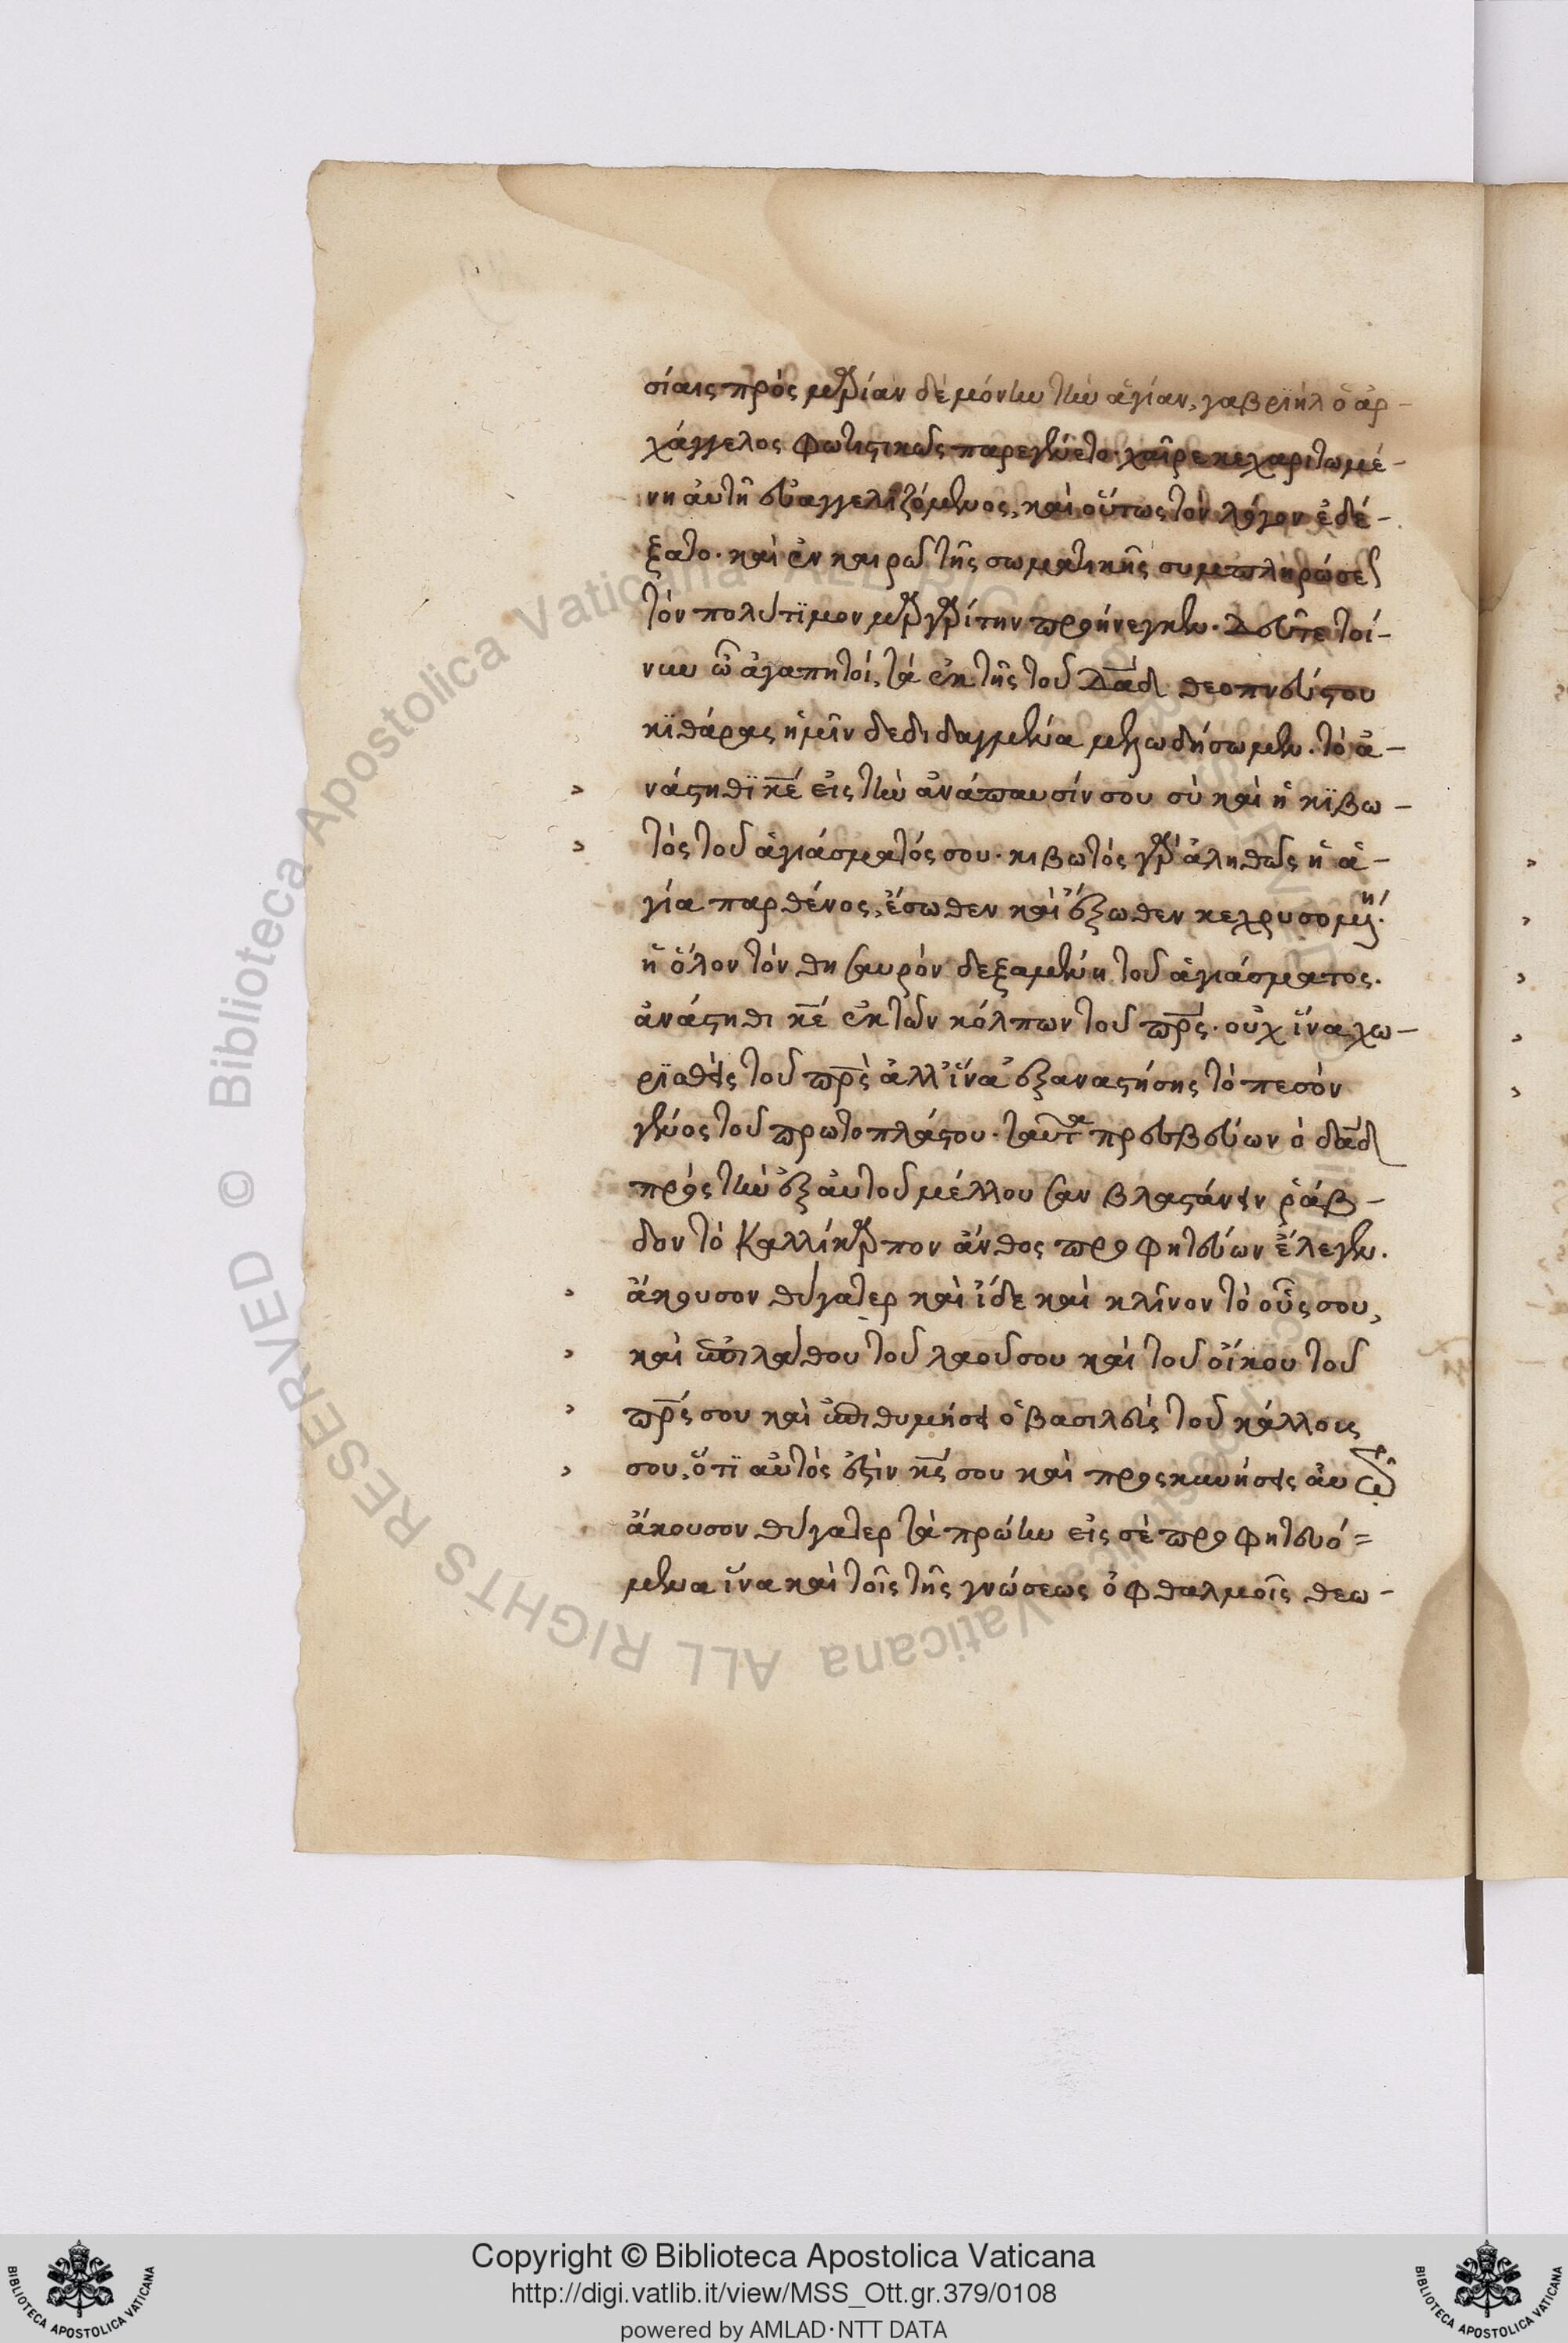 σίαις πρὸς μαρίαν δὲ μόνην τὴν ἁγίαν, γαβριὴλ ὁ ἀρ-
χάγγελος φωτιστικῶς παρεγένετο· χαῖρε κεχαριτωμέ-
νη αὐτῇ εὐαγγελιζόμενος, καὶ οὕτως τὸν λόγον ἐδέ-
ξατο· καὶ ἐν καιρῷ τῆς σωματικῆς συμπληρώσεως
τὸν πολύτϊμον μαργαρίτην προήνεγκεν. Δεῦτε τοί-
νυν ὦ ἀγαπητοί, τὰ ἐκ τῆς τοῦ Δαδ θεοπνεύστου
κϊθάρας ἡμῖν δεδιδαγμένα μελωδήσωμεν. τὸ ἀ-
> νάστηθϊ κε εἰς τὴν ἀνάπαυσίν σου σὺ καὶ ἡ κϊβω-
> τὸς τοῦ ἁγιάσματός σου· κιβωτὸς γὰρ ἀληθῶς ἡ ἁ-
γία παρθένος, ἔσωθεν καὶ ἔξωθεν κεχρυσομένη·
ἡ ὅλον τὸν θησαυρὸν δεξαμένη τοῦ ἁγιάσματος.
ἀνάστηθι κε ἐκ τῶν κόλπων τοῦ πρς· οὐχ ἵνα χω-
ρισθῇς τοῦ πρς ἀλλ' ἵνα ἐξαναστήσης τὸ πεσὸν
γένος τοῦ πρωτοπλάστου· ταῦτα πρεσβεύων ὁ δαδ
πρὸς τὴν ἐξ αὐτοῦ μέλλουσαν βλαστάνειν ῥάβ-
δον τὸ Καλλίκαρπον ἄνθος προφητεύων ἔλεγεν.
> ἄκουσον θύγατερ καὶ ἴδε καὶ κλῖνον τὸ οὖς σου,
> καὶ ἐπιλάθου τοῦ λαοῦ σου καὶ τοῦ οἴκου τοῦ
> πρς σου καὶ ἐπιθυμήσει ὁ βασιλεὺς τοῦ κάλλους
> σου, ὅτϊ αὐτός ἐστιν κς σου καὶ προσκυνήσεις αὐτῷ
ἄκουσον θύγατερ τὰ πρώην εἰς σὲ προφητευό=
μενα ἵνα καὶ τοῖς τῆς γνώσεως ὀφθαλμοῖς θεω-
Copyright © Biblioteca Apostolica Vaticana
http://digi.vatlib.it/view/MSS_Ott.gr.379/0108
powered by AMLAD·NTT DATA